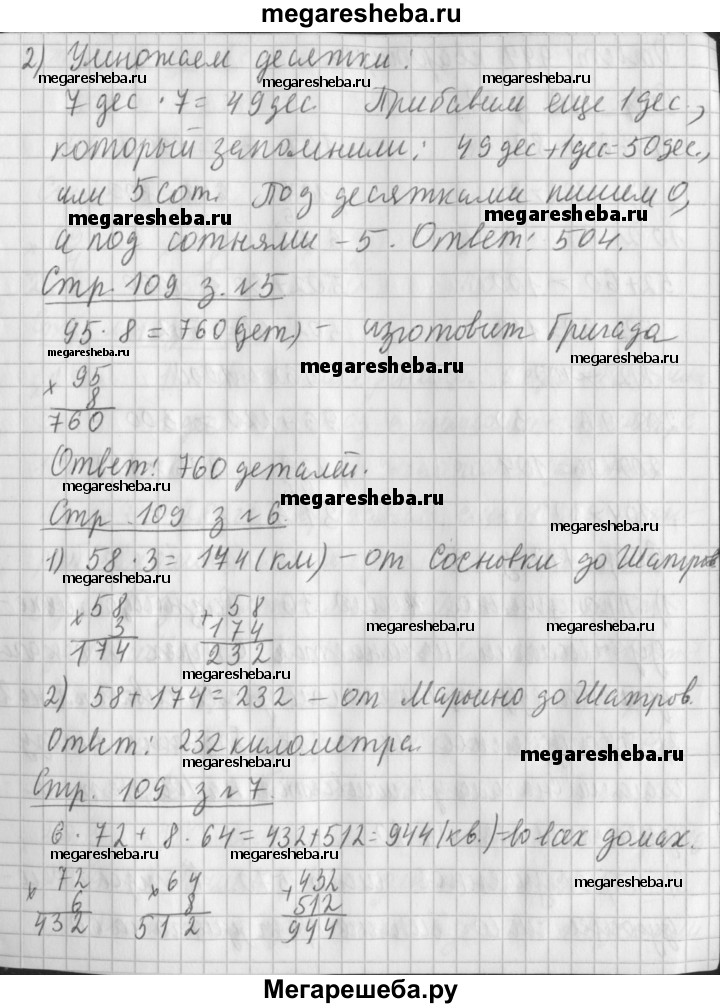 megaresheba.ru
2) Умножаем десятки:
megaresheba.ru megaresheba.ru megaresheba.ru
7 дес · 7 = 49 дес. Прибавим еще 1 дес.,
который запомнили: 49 дес + 1 дес = 50 дес.,
или 5 сот. Под десятками пишем 0,
megaresheba.ru megaresheba.ru
а под сотнями – 5. Ответ: 504.
Стр. 109 з. №5
95 · 8 = 760 (дет) – изготовит бригада
megaresheba.ru megaresheba.ru megaresheba.ru
× 95
8
760
Ответ: 760 деталей.
megaresheba.ru megaresheba.ru
Стр. 109 з №6.
megaresheba.ru
1) 58 · 3 = 174 (км) – от Сосновки до Шатров
megaresheba.ru
× 58 + 58
3 174
174 232
megaresheba.ru megaresheba.ru
megaresheba.ru
2) 58 + 174 = 232 – от Марьино до Шатров.
Ответ: 232 километра.
megaresheba.ru megaresheba.ru
Стр. 109 з №7.
6 · 72 + 8 · 64 = 432 + 512 = 944 (кв.) – во всех домах.
megaresheba.ru megaresheba.ru megaresheba.ru
× 72 × 64 + 432
6 8 512
432 512 944
megaresheba.ru
Мегарешеба.ру